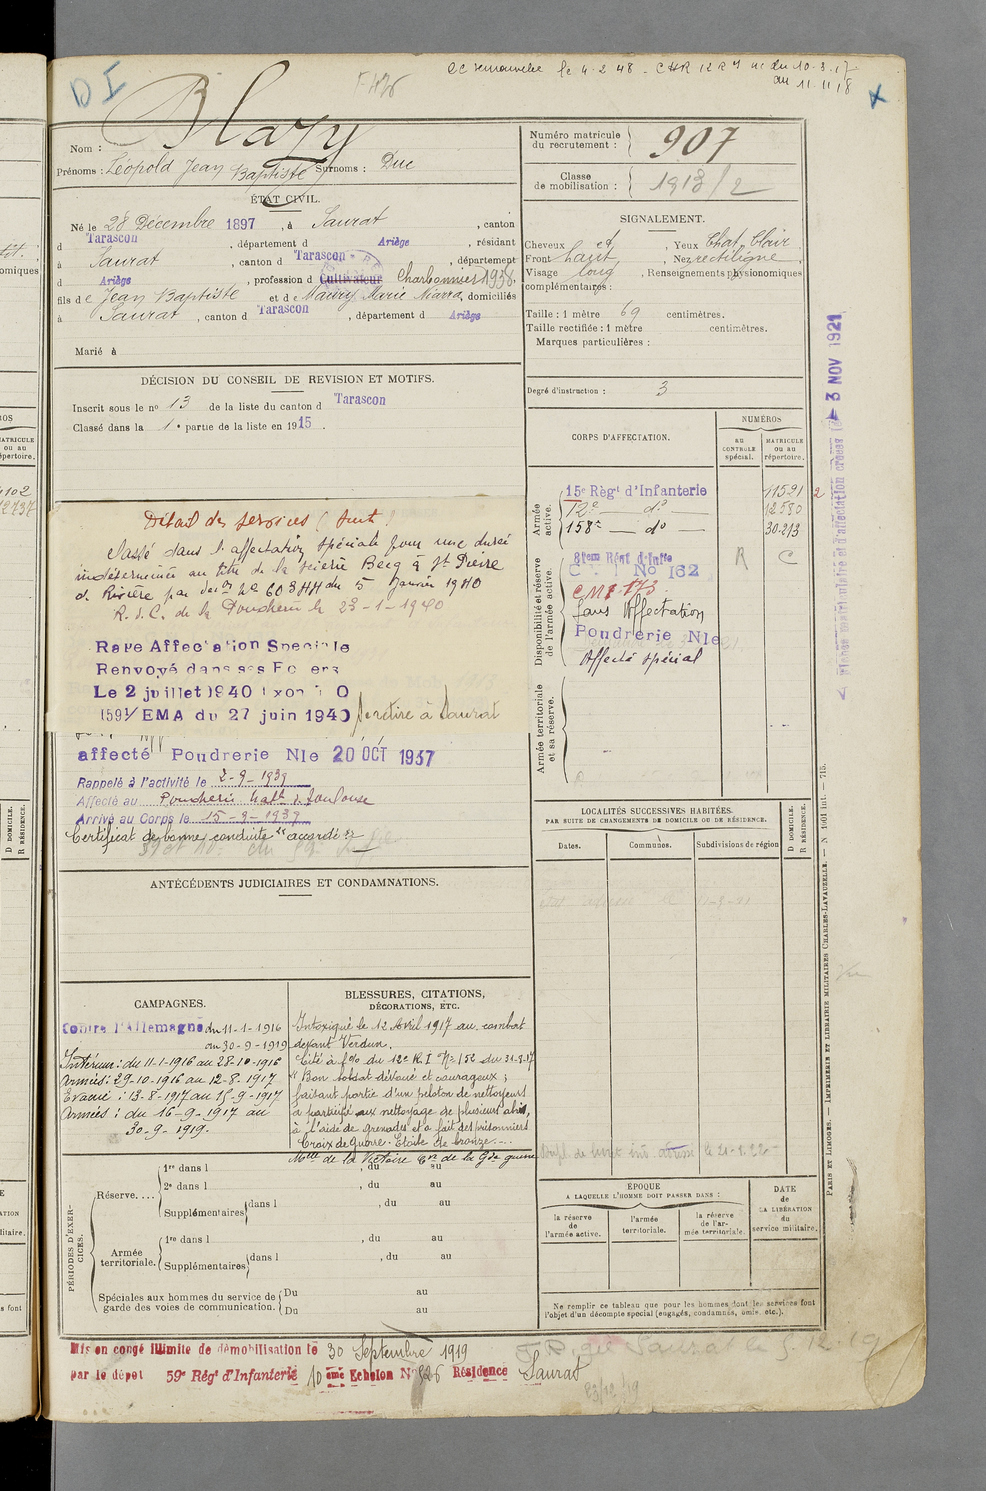 D I
CC renouvelée le 4-2-48 - CHR 12 RI du 10-3-17
au 11-11-18
Nom : Blazy
Prénoms : Léopold Jean Baptiste Surnoms : Duc
Numéro matricule du recrutement : 907
Classe de mobilisation : 1913/2
ÉTAT CIVIL.
Né le 28 Décembre 1897, à Saurat, canton
d Tarascon, département d Ariège, résidant
à Saurat, canton d Tarascon, département
d Ariège, profession d Cultivateur Charbonnier 1938.
fils de Jean Baptiste et de Maury Marie, domiciliés
à Saurat, canton d Tarascon, département d Ariège
Marié à
SIGNALEMENT.
Cheveux, Yeux Chat. Clair
Front haut, Nez rectiligne
Visage long, Renseignements physionomiques
complémentaires :
Taille : 1 mètre 69 centimètres.
Taille rectifiée : 1 mètre centimètres.
Marques particulières :
Degré d'instruction : 3
DÉCISION DU CONSEIL DE REVISION ET MOTIFS.
Inscrit sous le no 13 de la liste du canton d Tarascon
Classé dans la 1e partie de la liste en 1915.
CORPS D'AFFECTATION.
NUMÉROS
AU CONTROLE spécial.
MATRICULE OU AU répertoire.
Armée active.
15e Régt d'Infanterie 11591
12e do 12580
158e do 30.213
Disponibilité et réserve de l'armée active.
81eme Régt d'Infie R C
No 162
CM I 173
Sans Affectation
Poudrerie Nle
Affecté spécial
Armée territoriale et sa réserve.
3 NOV 1921
Détail des services (suite)
Classé dans l'affectation spéciale pour une durée
indéterminée au titre de la scierie Becq à St Pierre
d. Rivière par 5 janvier 1940
R. d. C. de la Poudrerie le 23-1-1940
Raye Affectation Spéciale
Renvoyé dans ses Foyers
Le 2 juillet 1940
EMA du 27 juin 1940 Se retire à Saurat
affecté Poudrerie Nle 20 OCT 1937
Rappelé à l'activité le 2-9-1939
Affecté au Poudrerie Natle de Toulouse
Arrivé au Corps le 15-9-1939
Certificat de bonne conduite "accordé"
ANTÉCÉDENTS JUDICIAIRES ET CONDAMNATIONS.
LOCALITÉS SUCCESSIVES HABITÉES.
PAR SUITE DE CHANGEMENTS DE DOMICILE OU DE RÉSIDENCE.
Dates.
Communes.
Subdivisions de région
D DOMICILE.
R RÉSIDENCE.
CAMPAGNES.
Contre l'Allemagne du 11-1-1916
au 30-9-1919
Intérieur : du 11-1-1916 au 28-10-1916
Armées : 29-10-1916 au 12-8-1917
Evacué : 13-8-1917 au 15-9-1917
Armées : du 16-9-1917 au
30-9-1919.
BLESSURES, CITATIONS,
DÉCORATIONS, ETC.
Intoxiqué le 12 Avril 1917 au combat
devant Verdun.
Cité à l'O/ du 12e R I No 152 du 31-8-17
" Bon soldat dévoué et courageux ;
faisant partie d'un peloton de nettoyeurs
a participé aux nettoyage de plusieurs abris,
à l'aide de grenades et a fait des prisonniers
Croix de Guerre. Etoile de bronze.
Mlle de la Victoire Cve de la Gde guerre
PÉRIODES D'EXERCICES.
Réserve....
1re dans l , du au
2e dans l , du au
Supplémentaires dans l , du au
Armée territoriale.
1re dans l , du au
Supplémentaires dans l , du au
Spéciales aux hommes du service de garde des voies de communication.
Du au
Du au
ÉPOQUE
A LAQUELLE L'HOMME DOIT PASSER DANS :
la réserve de l'armée active.
l'armée territoriale.
la réserve de l'armée territoriale.
DATE DE LA LIBÉRATION du service militaire.
Ne remplir ce tableau que pour les hommes dont les services font
l'objet d'un décompte spécial (engagés, condamnés, omis, etc.).
PARIS ET LIMOGES. — IMPRIMERIE ET LIBRAIRIE MILITAIRES CHARLES-LAVAUZELLE. — N 1001 int. — 715.
Mis en congé illimité de démobilisation le 30 Septembre 1919
par le dépôt 59e Régt d'Infanterie 10 ème Echelon No 326 Résidence Saurat
23/12/19